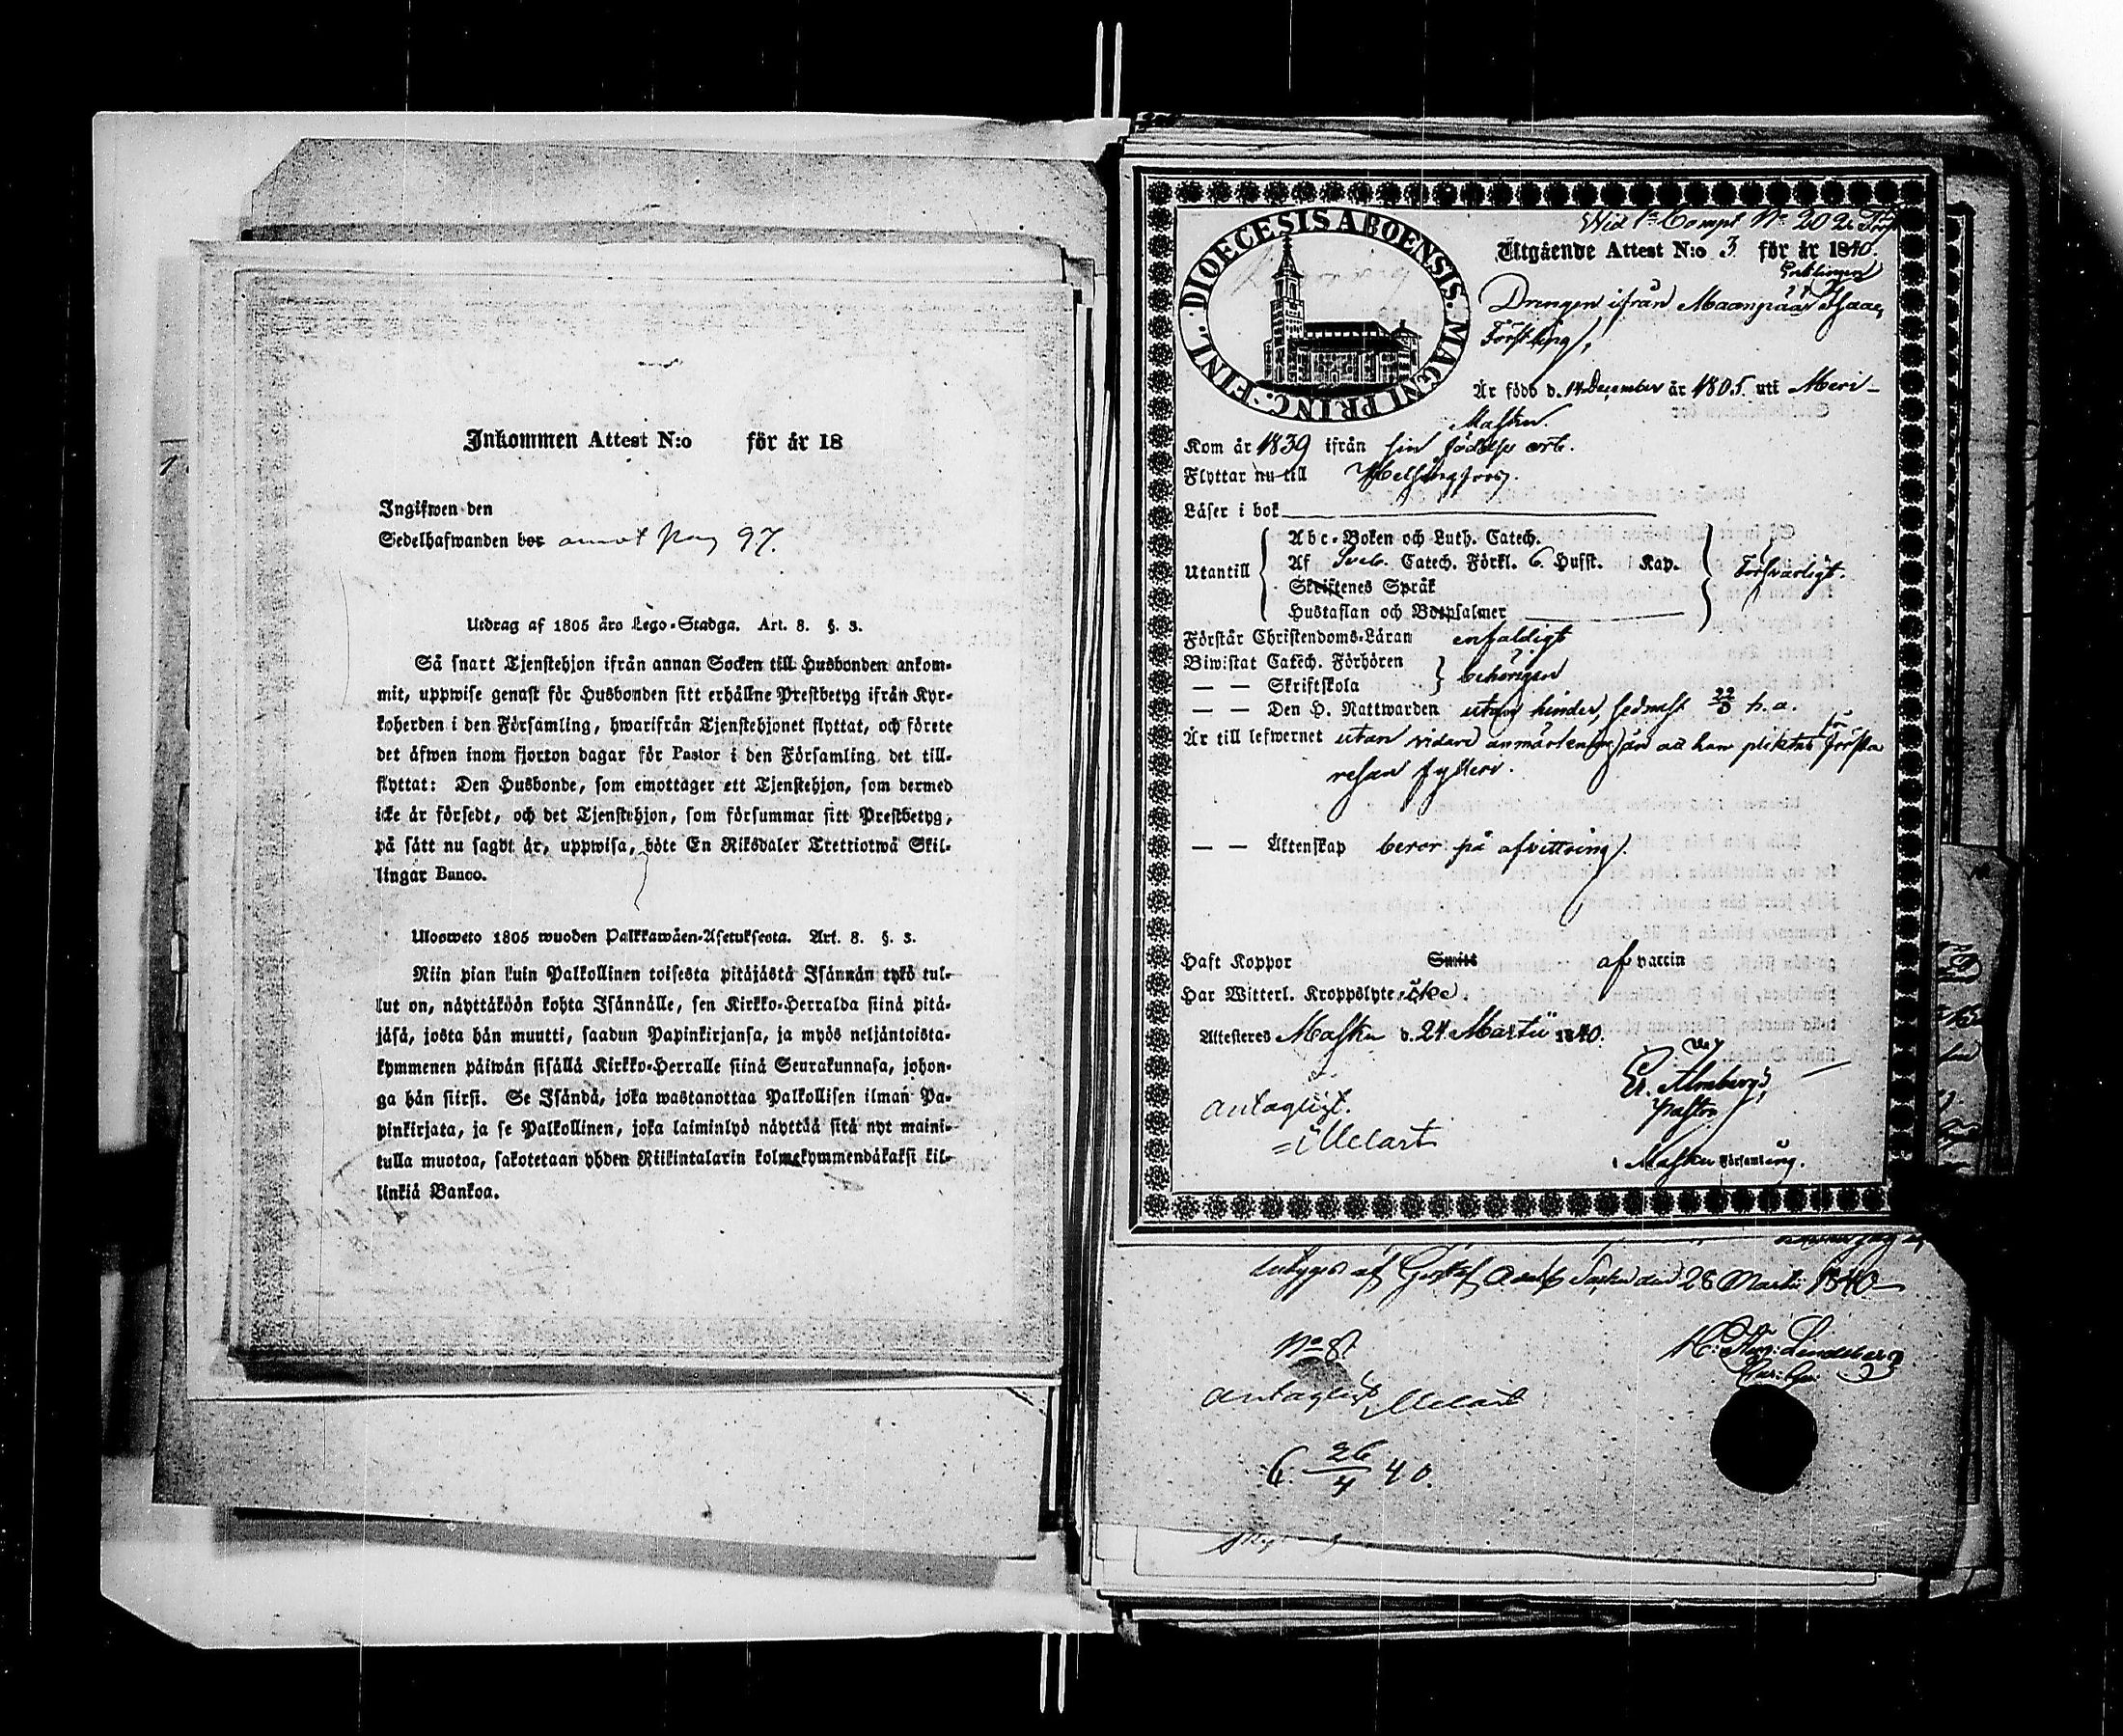 Inkommen Attest N:o för år 18
Ingifwen den
Sedelhafwanden bor annot pag 97.
Utdrag af 1805 års Lego-Stadga. Art. 8. §. 3.
Så snart Tjenstehjon ifrån annan Socken till Husbonden ankom-
mit, uppwise genast för Husbonden sitt erhållne Prestbetyg ifrån Kyr-
koherden i den Församling, hwarifrån Tjenstehjonet flyttat, och förete
det äfwen inom fjorton dagar för Pastor i den Församling det till-
flyttat: Den Husbonde, som emottager ett Tjenstehjon, som dermed
icke är försedt, och det Tjenstehjon, som försummar sitt Prestbetyg,
på sätt nu sagdt är, uppwisa, böte En Riksdaler Trettiotwå Skil-
lingar Banco.
Uloosweto 1805 wuoden Palkkawäen-Asetuksesta. Art. 8. §. 3.
Niin pian kuin Palkollinen toisesta pitäjästä Isännän tykö tul-
lut on, näyttäköön kohta Isännälle, sen Kirkko-Herralda siinä pitä-
jäsä, josta hän muutti, saadun Papinkirjansa, ja myös neljäntoista-
kymmenen päiwän sisällä Kirkko-Herralle siinä Seurakunnasa, johon-
ga hän siirsi. Se Isändä, joka wastanottaa Palkollisen ilman Pa-
pinkirjata, ja se Palkollinen, joka laiminlyö näyttää sitä nyt maini-
tulla muotoa, sakotetaan yhden Riikintalarin kolmekymmendäkaksi kil-
linkiä Bankoa.
DIOECESIS ABOENSIS. MAGNI PRINC. FINL.
Wid 1:a Comp: N:o 20
Utgående Attest N:o 3 för år 1840.
Enklingen
Drengen ifrån Maanpää Isaac
Förstling,
Är född d. 14 December år 1805. uti Meri-
Masku.
Kom år 1839 ifrån sin födelse ort.
Flyttar nu till Helsingfors.
Läser i bok
Abc-Boken och Luth. Catech.
Utantill Af Sveb. Catech. Förkl. 6. Hufst. Kap. Försvarligt.
Skriftenes Språk
Hustaflan och Botpsalmer
Förstår Christendoms-Läran enfaldigt
Biwistat Catech. Förhören
— — Skriftskola behörigen
— — Den H. Nattwarden utan hinder, sednast 22/3 h. a.
Är till lefwernet utan vidare anmärkning, än att han pliktat för första
resan fylleri.
— — Äktenskap beror på afvittring.
Haft Koppor Smitt af vaccin
Har Witterl. Kroppslyte icke
Attesteres Masku d. 24 Martii 1840.
Er. Almberg,
Pastor
i Masku Församling.
antagligt.
Melart
betygas af Gustaf Adolfs den 28 Martii 1840
N:o 81
Lindeberg
antagligt Melart
6 26/4 40.